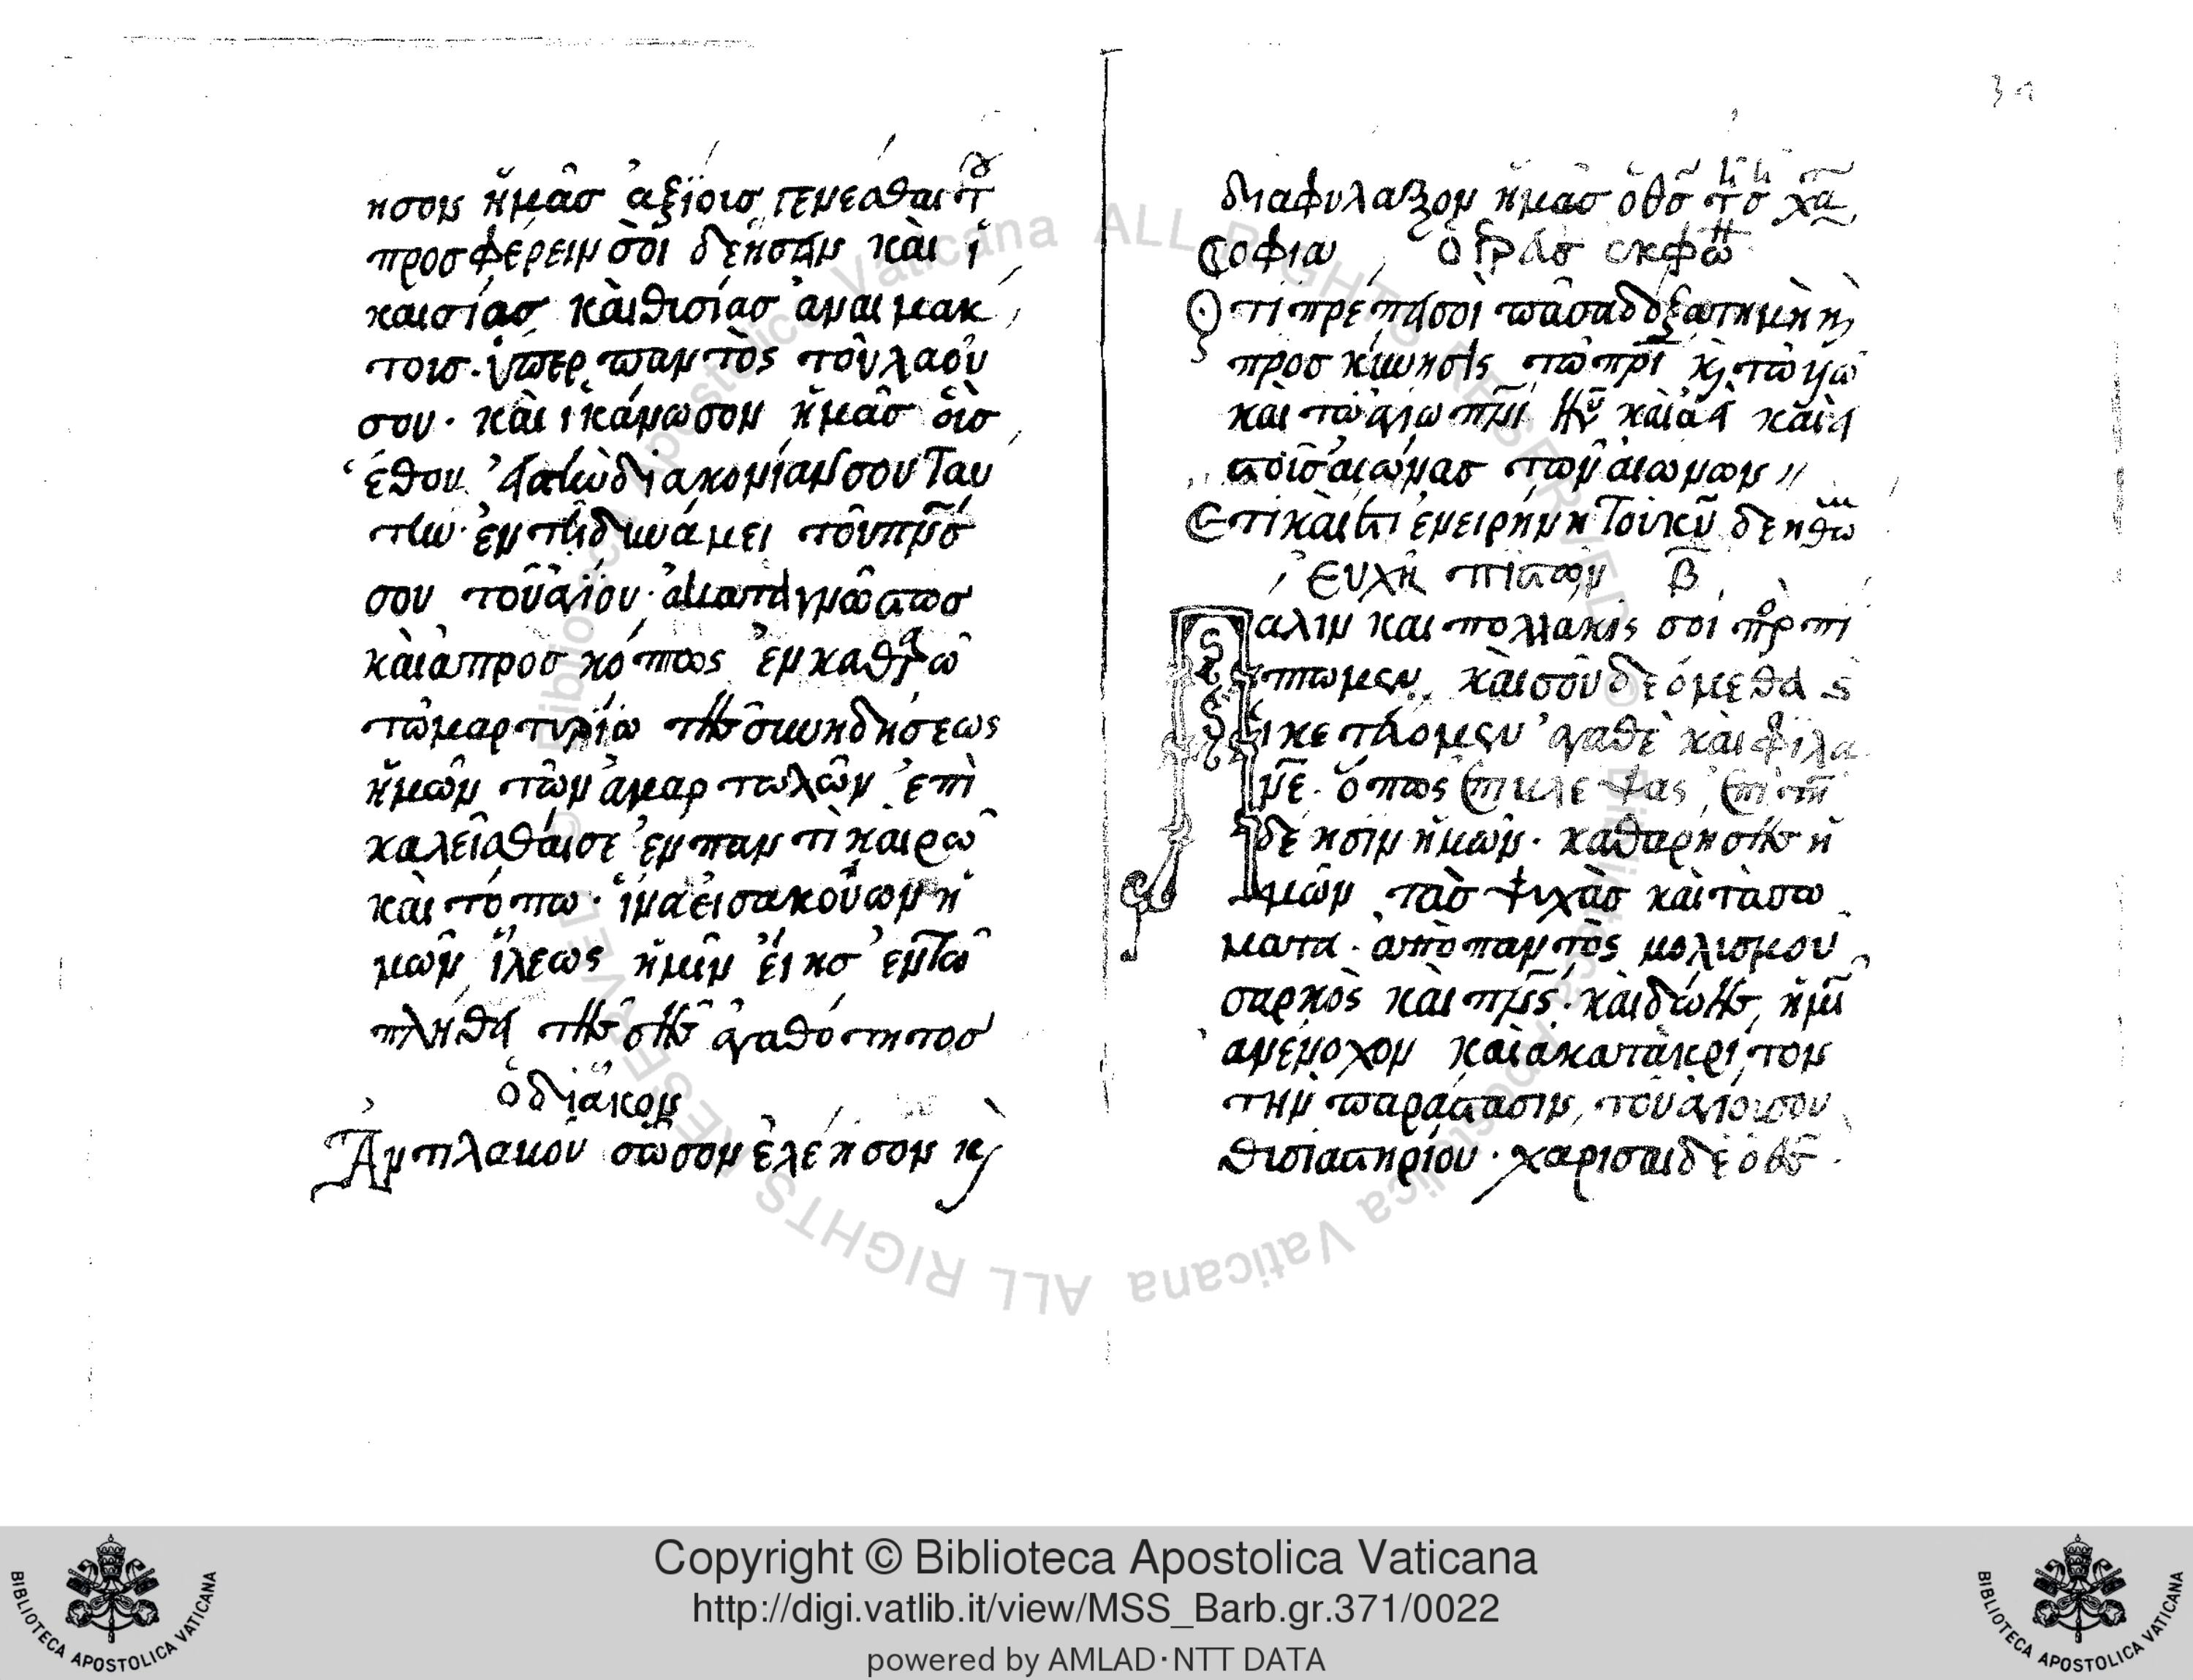 ησον ἡμᾶσ ἀξίοισ γενέσθαι τοῦ
προσφέρειν σοὶ δεήσειν καὶ ἱ
καισίασ καὶ θισίασ ἀναιμακ
τοισ· ὑπερ παντὸς τοῦ λαοῦ
σου· καὶ ἱκάνωσον ἡμᾶσ οὓσ
ἔθου εἰστὴν διακονίαν σου ταυ
την· ἐν τῆ δυνάμει τοῦ πνσ
σου τοῦ ἁγίου· ἀκαταγνώστωσ
καὶ ἀπροσκόπτως ἐν καθαρῶ
τῶ μαρτυρίω τῆσ συνηδήσεως
ἡμῶν τῶν ἁμαρτωλῶν ἐπὶ
καλεῖσθαι σε ἐν παντὶ καιρῶ
καὶ τόπω· ἵνα εἰσακούων ἡ
μῶν ἵλεως ἡμῖν εἴησ ἐν τῶ
πλήθει τῆσ σῆσ ἀγαθότητοσ
ὁ διάκον
Ἀντιλαβοῦ σῶσον ἐλέησον κ
διαφυλαξον ἡμᾶσ ὁ θσ τσ χα
σοφια ὁ ἱερεὺσ εκφω
Οτι πρέπει σοὶ πᾶσα δόξα τιμὴ κ
προσκύνησις τῶ πρι κ τῶ υἱῶ
και τῶ ἁγίω πνι νῦν καὶ ἀεὶ καὶ εἰ
τοὺσ αἰώνασ τῶν αἰώνων
Ετι καὶ ἔτι ἐν εἰρήνη τοῦ κυ δεηθῶ
Εὐχὴ πιστῶν β
Παλιν και πολλάκις σοι προσπι
πτωμεν καὶ σοῦ δεόμεθα
ἱκετεύομεν ἀγαθὲ καὶ φιλα
νε· ὅπως ἐπιβλέψας ἐπὶ τη
δέησιν ἡμῶν· καθαρησησ ἡ
μῶν τὰσ ψυχὰσ καὶ τὰ σω
ματα· ἀπὸ παντὸς μολισμου
σαρκὸς καὶ πνς· καὶ δώησ ἡμῖ
ανένοχον καὶ ἀκατάκριτον
τὴν παράστασιν, τοῦ ἁγίου σου
θισιαστηρίου· χαρισαι δὲ ὁ θσ
Copyright © Biblioteca Apostolica Vaticana
http://digi.vatlib.it/view/MSS_Barb.gr.371/0022
powered by AMLAD·NTT DATA
BIBLIOTECA APOSTOLICA VATICANA
BIBLIOTECA APOSTOLICA VATICANA